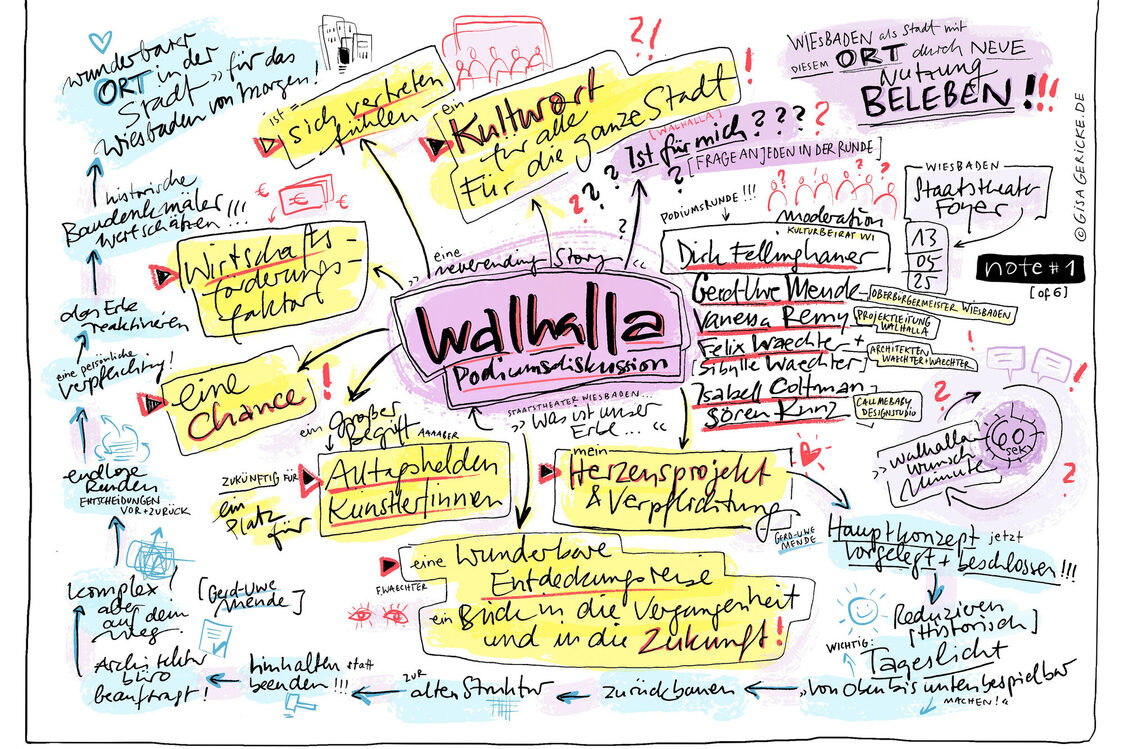 wunderbarer
ORT in der
Stadt " für das
Wiesbaden von morgen!
ist
sich vertreten
fühlen
ein
Kultwort
für alle
Für die ganze Stadt
?!
!
[WALHALLA]
Ist für mich ? ? ? ?
[FRAGE AN JEDEN IN DER RUNDE]
WIESBADEN als Stadt mit
DIESEM ORT durch NEUE
Nutzung
BELEBEN!!!
© GISAGERICKE.DE
historische
Baudenkmäler
wertschätzen!!!
€ €
Wirtschafts-
förderungs-
faktor
das Erbe
reaktivieren
eine persönliche
Verpflichtung!
eine
Chance
!
" eine
neverending Story "
walhalla
Podiumsdiskussion
STAATSTHEATER WIESBADEN...
" was ist unser
Erbe... "
PODIUMSRUNDE!!!
moderation
KULTURBEIRAT WI
Dirk Fellinghauer
Gerd-Uwe Mende
OBERBÜRGERMEISTER WIESBADEN
Vanessa Remy
PROJEKTLEITUNG
WALHALLA
Felix Waechter +
Sibylle Waechter
ARCHITEKTEN
WAECHTER + WAECHTER
Isabell Coltman
Sören Kunz
CALLMEBABY
DESIGNSTUDIO
WIESBADEN
Staatstheater
Foyer
13
05
25
note #1
[of 6]
60
sek
" walhalla
wunsch
minute "
endlose
Runden
ENTSCHEIDUNGEN
VOR + ZURÜCK
ein großer
Begriff AAAABER
ZUKÜNFTIG FÜR
ein
Platz
für
Alltagshelden
Künstler!innen
mein
Herzensprojekt
& Verpflichtung
GERD-UWE
MENDE
Hauptkonzept jetzt
vorgelegt + beschlossen!!!
F. WAECHTER
eine wunderbare
Entdeckungsreise
ein Blick in die Vergangenheit
und in die Zukunft!
komplex!
aber
auf dem
Weg
[Gerd-Uwe
Mende]
Reduzieren
[Historisch]
WICHTIG:
Tageslicht
"von oben bis unten bespielbar
MACHEN!"
zurückbauen
ZUR
alten Struktur
hinhalten statt
beenden!!!
Architektur
büro
beauftragt!